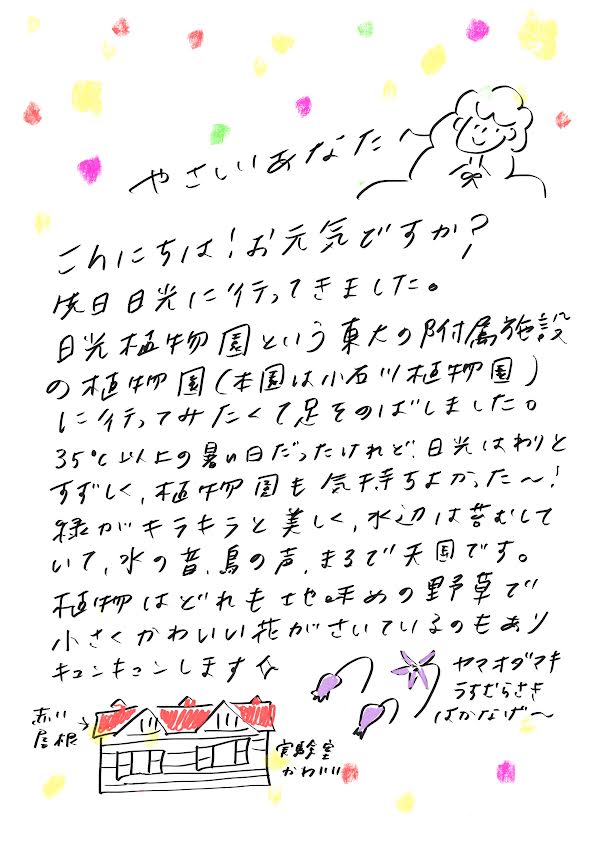 やさしいあなたへ
こんにちは！お元気ですか？
先日日光に行ってきました。
日光植物園という東大の附属施設
の植物園（本園は小石川植物園）
に行ってみたくて足をのばしました。
35℃以上の暑い日だったけれど、日光はわりと
すずしく、植物園も気持ちよかった〜！
緑がキラキラと美しく、水辺は苔むして
いて、水の音、鳥の声、まるで天国です。
植物はどれも地味めの野草で
小さくかわいい花がさいているのもあり
キュンキュンします☆
ヤマオダマキ
うすむらさき
はかなげ〜
赤い
屋根
実験室
かわいい